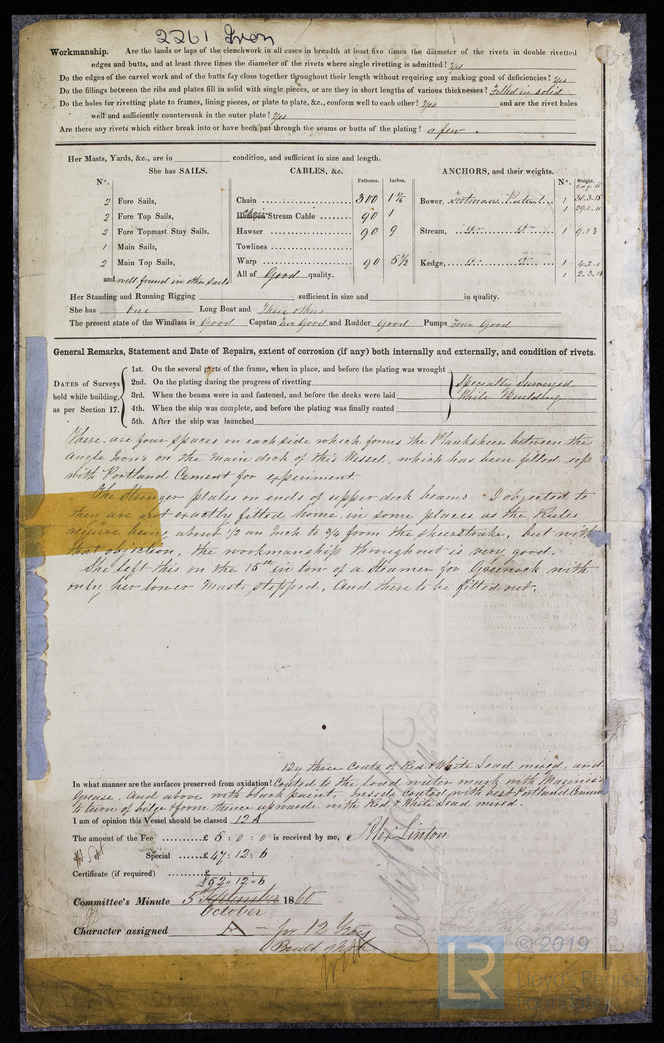 2261 Iron
Workmanship. Are the lands or laps of the clenchwork in all cases in breadth at least five times the diameter of the rivets in double rivetted
edges and butts, and at least three times the diameter of the rivets where single rivetting is admitted? Yes
Do the edges of the carvel work and of the butts fay close together throughout their length without requiring any making good of deficiencies? Yes
Do the fillings between the ribs and plates fill in solid with single pieces, or are they in short lengths of various thicknesses? Filled in solid
Do the holes for rivetting plate to frames, lining pieces, or plate to plate, &c., conform well to each other? Yes and are the rivet holes
well and sufficiently countersunk in the outer plate? Yes
Are there any rivets which either break into or have been put through the seams or butts of the plating? a few.
Her Masts, Yards, &c., are in condition, and sufficient in size and length.
She has SAILS. CABLES, &c. ANCHORS, and their weights.
N°. Fathoms. Inches. N°. Weight.
2 Fore Sails, Chain 300 1 Bower, 1 30.3.15
2 Fore Top Sails, Stream Cable 90 1 1 29.0.11
2 Fore Topmast Stay Sails, Hawser 90 9 Stream, 1 9.13
1 Main Sails, Towlines
2 Main Top Sails, Warp 90 5½ Kedge, 1 4.2.0
and well found in other sails All of Good quality. 1 2.3.18
Her Standing and Running Rigging sufficient in size and in quality.
She has one Long Boat and Three others
The present state of the Windlass is Good Capstan Two Good and Rudder Good Pumps Four Good
General Remarks, Statement and Date of Repairs, extent of corrosion (if any) both internally and externally, and condition of rivets.
DATES of Surveys held while building, as per Section 17.
1st. On the several parts of the frame, when in place, and before the plating was wrought
2nd. On the plating during the progress of rivetting Specially Surveyed
3rd. When the beams were in and fastened, and before the decks were laid While Building
4th. When the ship was complete, and before the plating was finally coated
5th. After the ship was launched
There are four spaces on each side which forms the Planksheer between the
angle Iron's on the main deck of this Vessel, which has been filled up
with Portland Cement for experiment
The Stringer plates on ends of upper deck beams I objected to
they are not exactly fitted home in some places as the Rules
require being about 1/2 an Inch to 3/4 from the sheerstrake, but with
that objection, the workmanship throughout is very good.
She left this on the 15th in tow of a Steamer for Greenock with
only her lower Masts stepped, And there to be fitted out.
By three Coats of Red & White Lead mixed, and
In what manner are the surfaces preserved from oxidation? Coated to the load water mark with
Grease. And above with black paint. Inside Coated with best Portland Cement
to turn of bilge & from thence upwards with Red & White Lead mixed.
I am of opinion this Vessel should be classed 12 A
The amount of the Fee £ 5 : 0 : 0 is received by me, Alex Linton
Special £ 47 : 12 : 6
Certificate (if required) £
£52 " 12 " 6
Committee's Minute 5th September 1860
October
Character assigned A – for 12 Years
Built
© 2019
LR
Lloyd's Register
Foundation